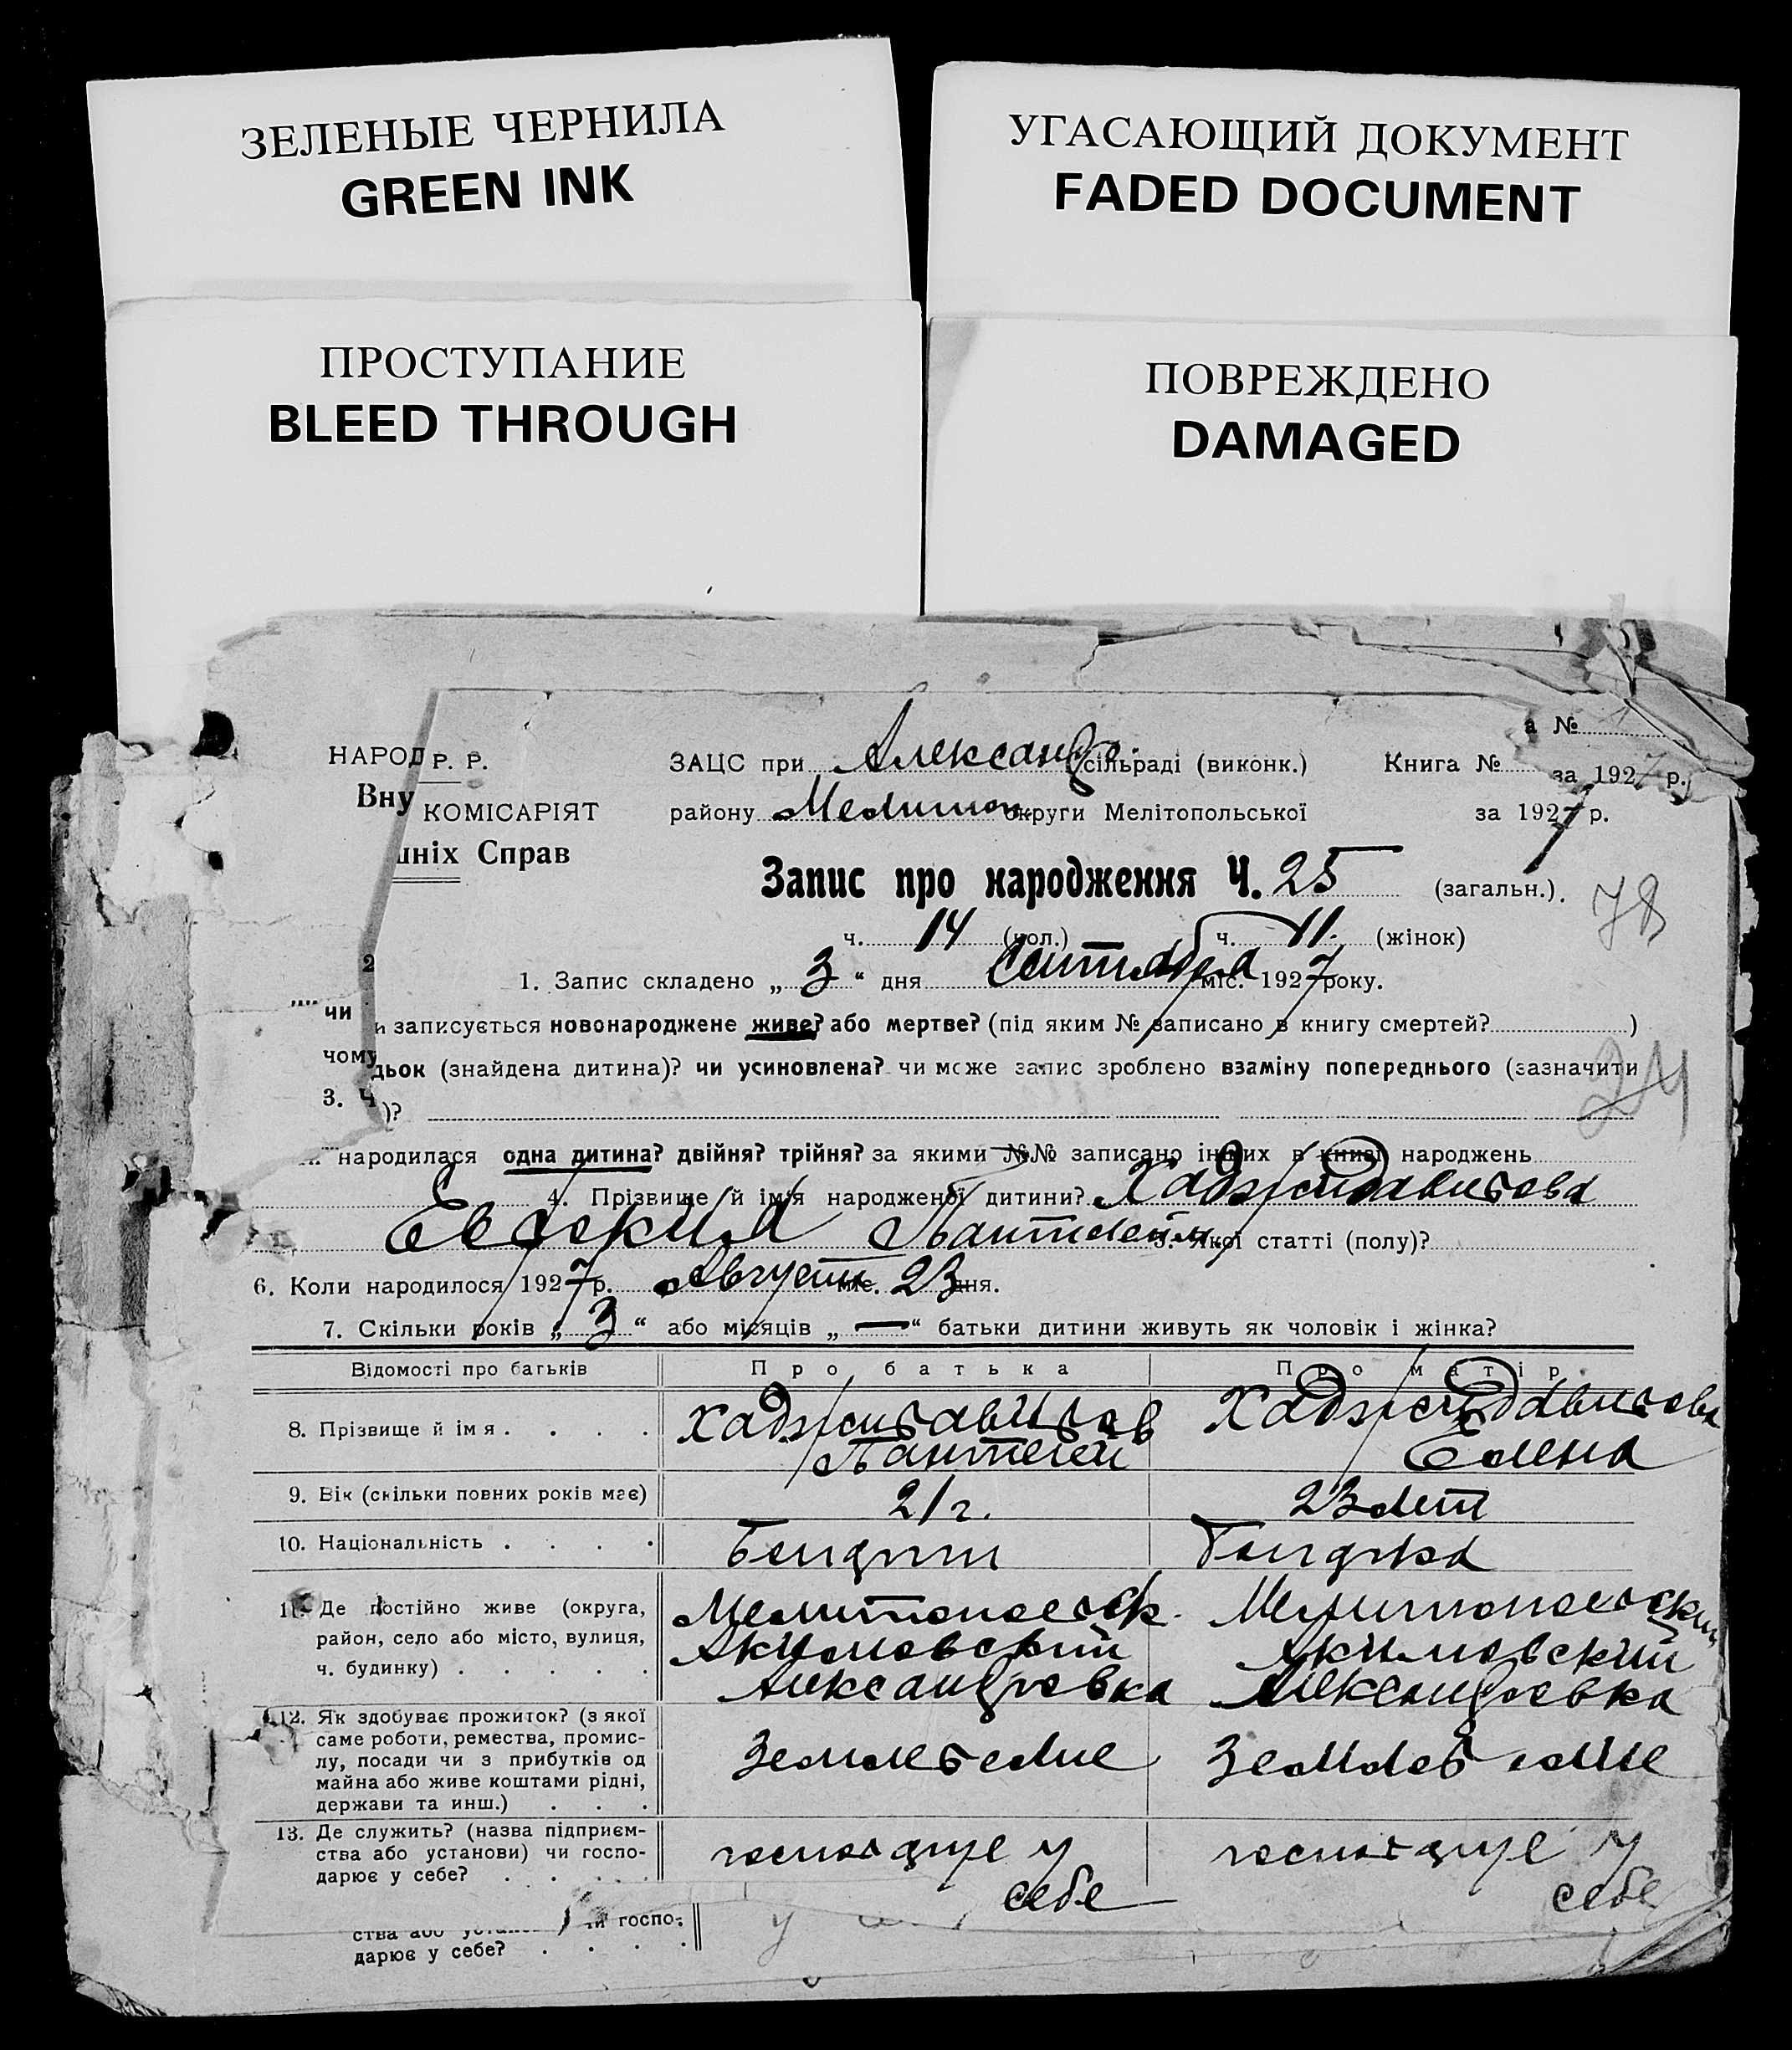 ЗЕЛЕНЫЕ ЧЕРНИЛА
GREEN INK
УГАСАЮЩИЙ ДОКУМЕНТ
FADED DOCUMENT
ПРОСТУПАНИЕ
BLEED THROUGH
ПОВРЕЖДЕНО
DAMAGED
а №
НАРОД Р. Р. ЗАЦС при Александр. сільраді (виконк.) Книга № за 1927 р.
Вну КОМІСАРІЯТ району Мелитоп. округи Мелітопольської за 1927 р.
шніх Справ
Запис про народження Ч. 25 (загальн.).
78
ч. 14 (чол.) ч. 11. (жінок)
2
1. Запис складено „ 3 “ дня Сентября міс. 1927 року.
чи и записується новонароджене живе? або мертве? (під яким № записано в книгу смертей? )
чому дьок (знайдена дитина)? чи усиновлена? чи може запис зроблено взаміну попереднього (зазначити
24
3. Ч )?
народилася одна дитина? двійня? трійня? за якими №№ записано інших в книзі народжень
4. Прізвище й ім'я народженої дитини? Хаджидавидова
Пантелейм. 5. Якої статті (полу)?
6. Коли народилося 1927 р. Август міс. 23 дня.
7. Скільки років „ 3 “ або місяців „ — “ батьки дитини живуть як чоловік і жінка?
Відомості про батьків Про батька Про матір
8. Прізвище й імя . . . . Хаджидавидов Пантелей Хаджидавидова Елена
9. Вік (скільки повних років має) 21 г. 23 лет
10. Національність . . . .
11. Де постійно живе (округа, Мелитопольск. Мелитопольский
район, село або місто, вулиця, Акимовский Акимовский
ч. будинку) . . . . . Александровка Александровка
12. Як здобуває прожиток? (з якої
саме роботи, ремества, промис-
лу, посади чи з прибутків од Земледелие Земледелие
майна або живе коштами рідні,
держави та инш.) . . .
13. Де служить? (назва підприєм-
ства або установи) чи госпо- господарує у господарує у
дарює у себе? . . . . . себе себе
ства або чи госпо-
дарює у себе? . . . .